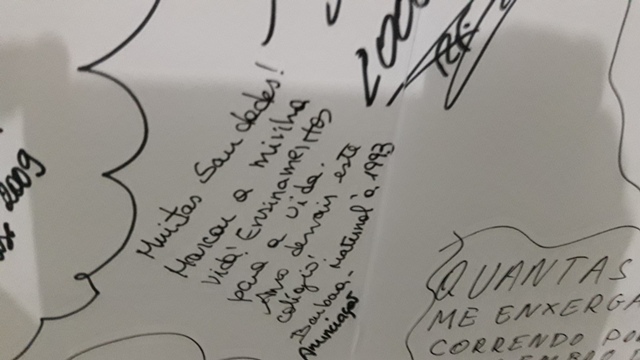 2009
2000
Muitas Saudades!
Marcou a minha
vida! Ensinamentos
para a vida.
Amo demais este
colégio!
Barbara - Maternal à 1993
Anunciação
QUANTAS
ME ENXERGA
CORRENDO PO